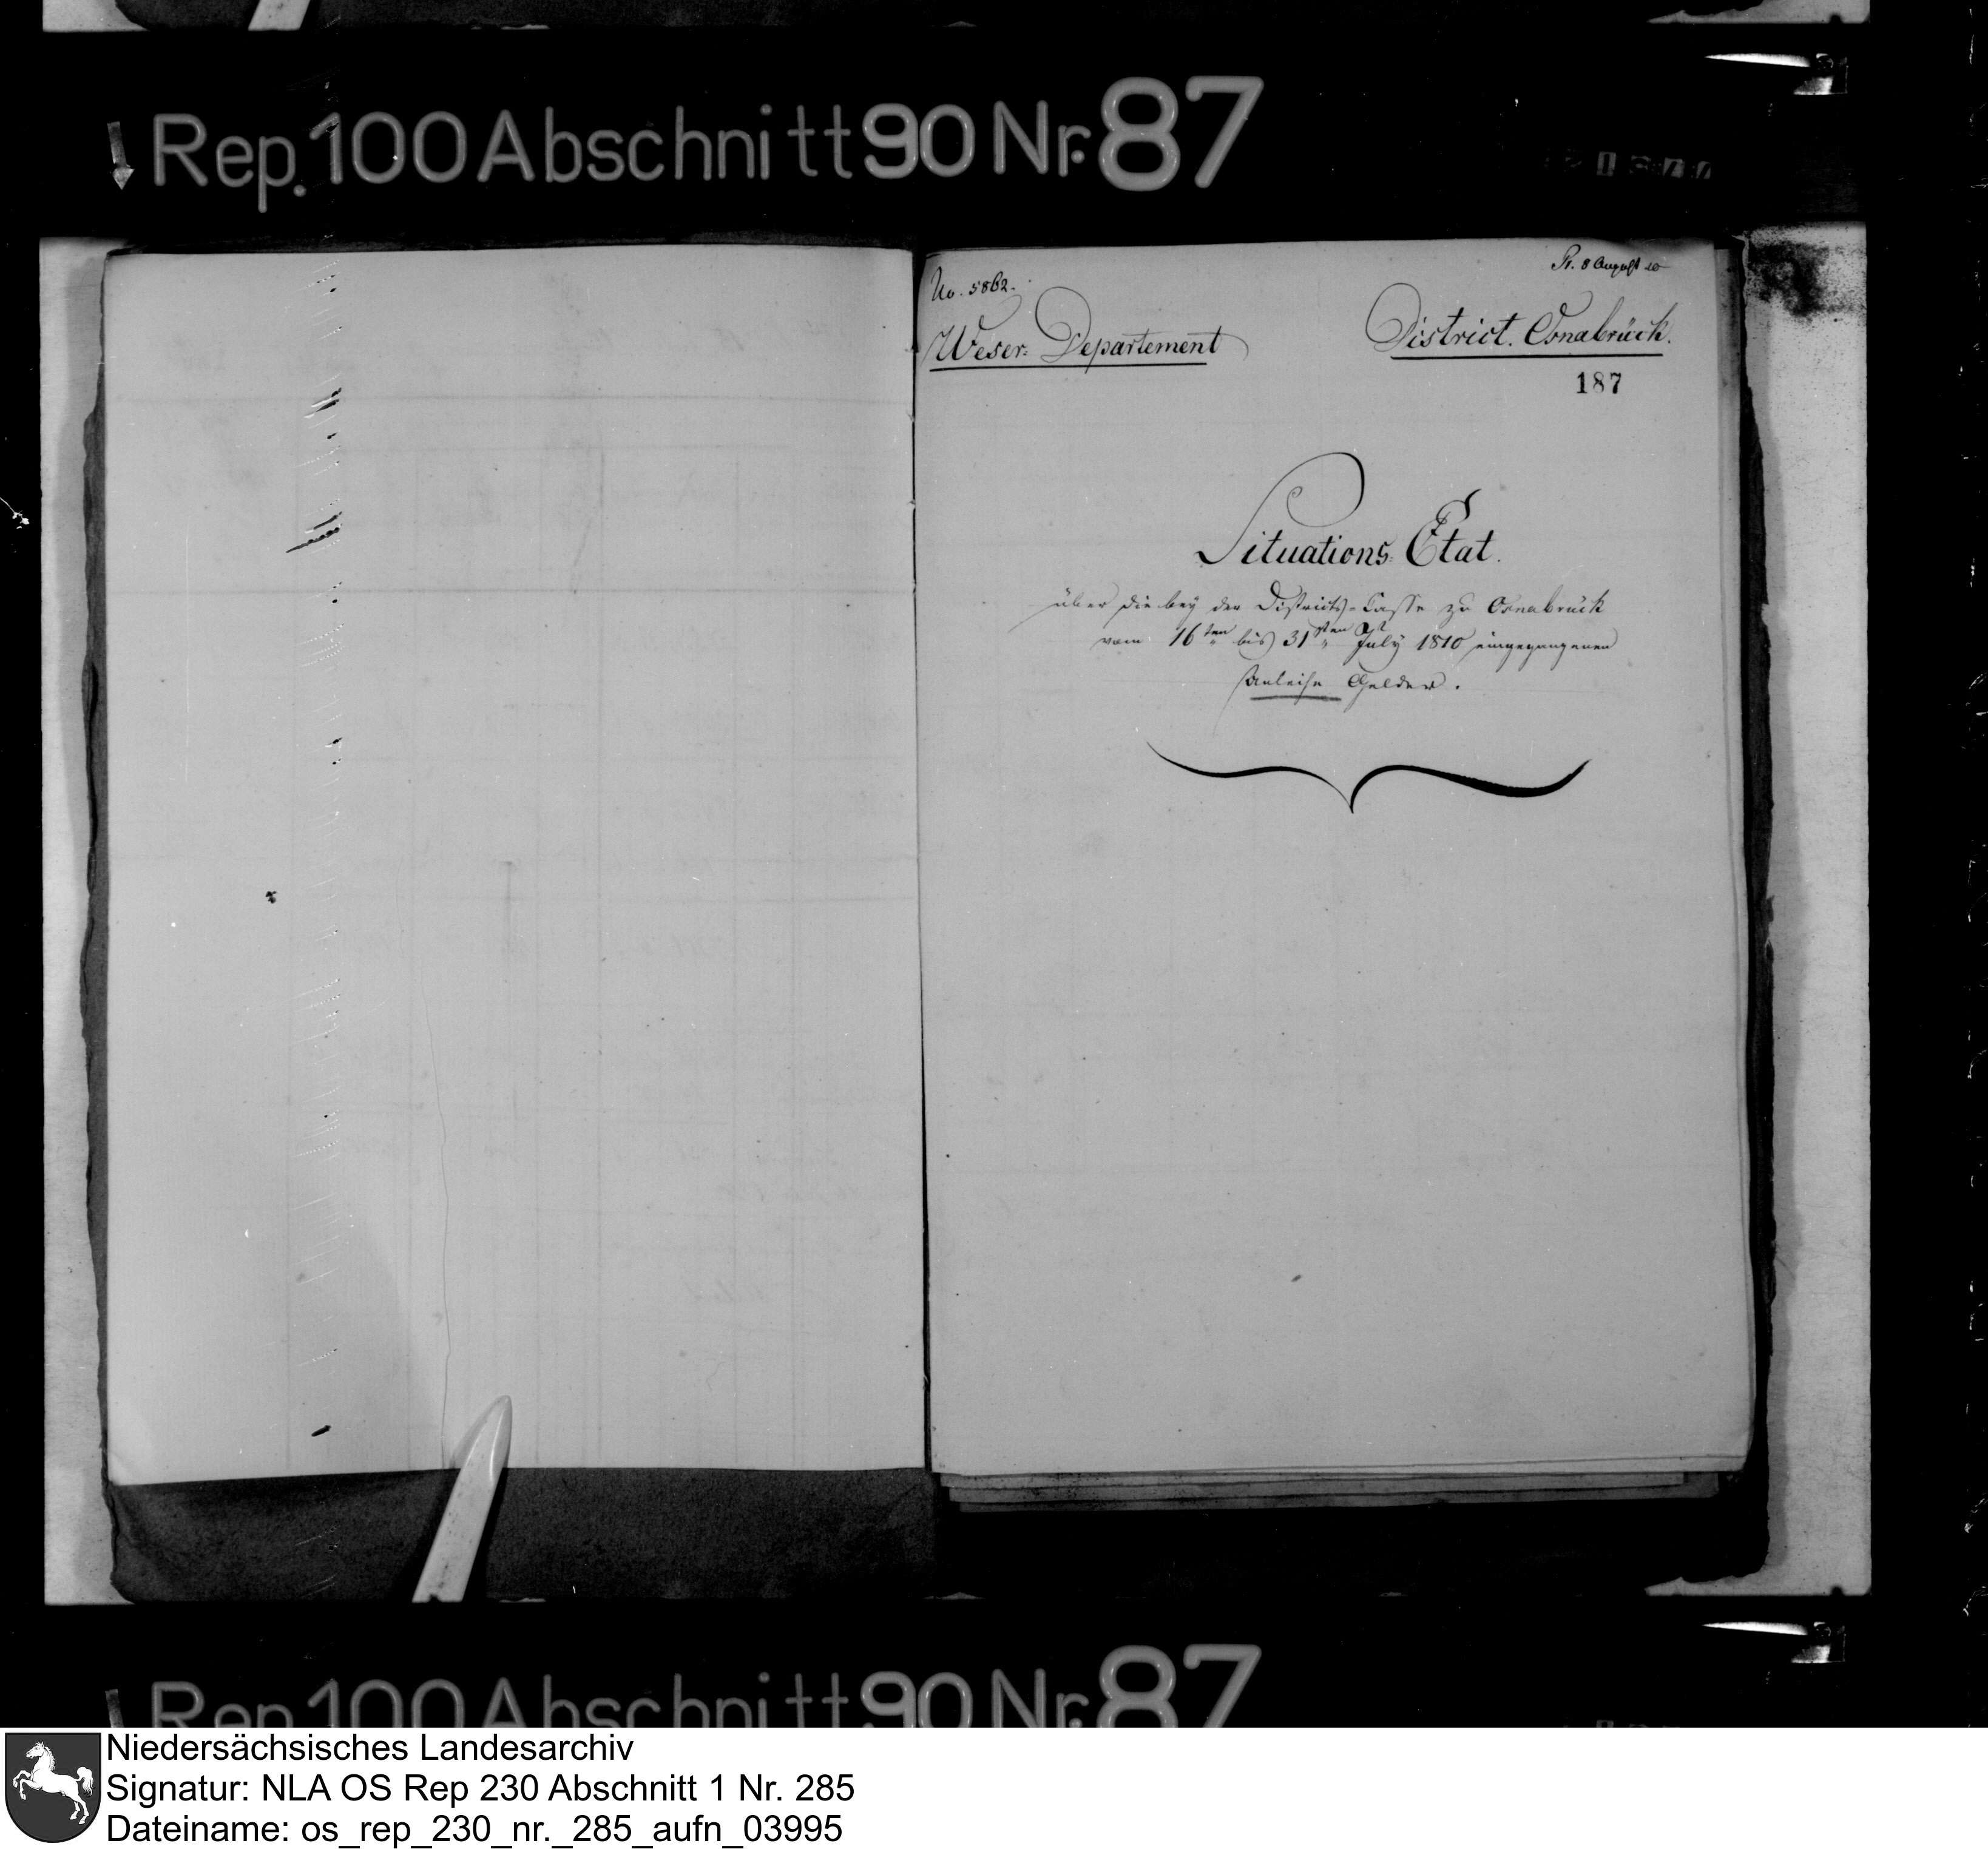 Rep. 100 Abschnitt 90 Nr. 87
No. 5862.
Pr. 8 August 10
Weser-Departement
District. Osnabrück.
187
Situations-Etat.
über die bey der Districts-Casse zu Osnabrück
vom 16ten bis 31sten July 1810 eingegangenen
Anleihe Gelder.
Rep. 100 Abschnitt 90 Nr. 87
Niedersächsisches Landesarchiv
Signatur: NLA OS Rep 230 Abschnitt 1 Nr. 285
Dateiname: os_rep_230_nr._285_aufn_03995